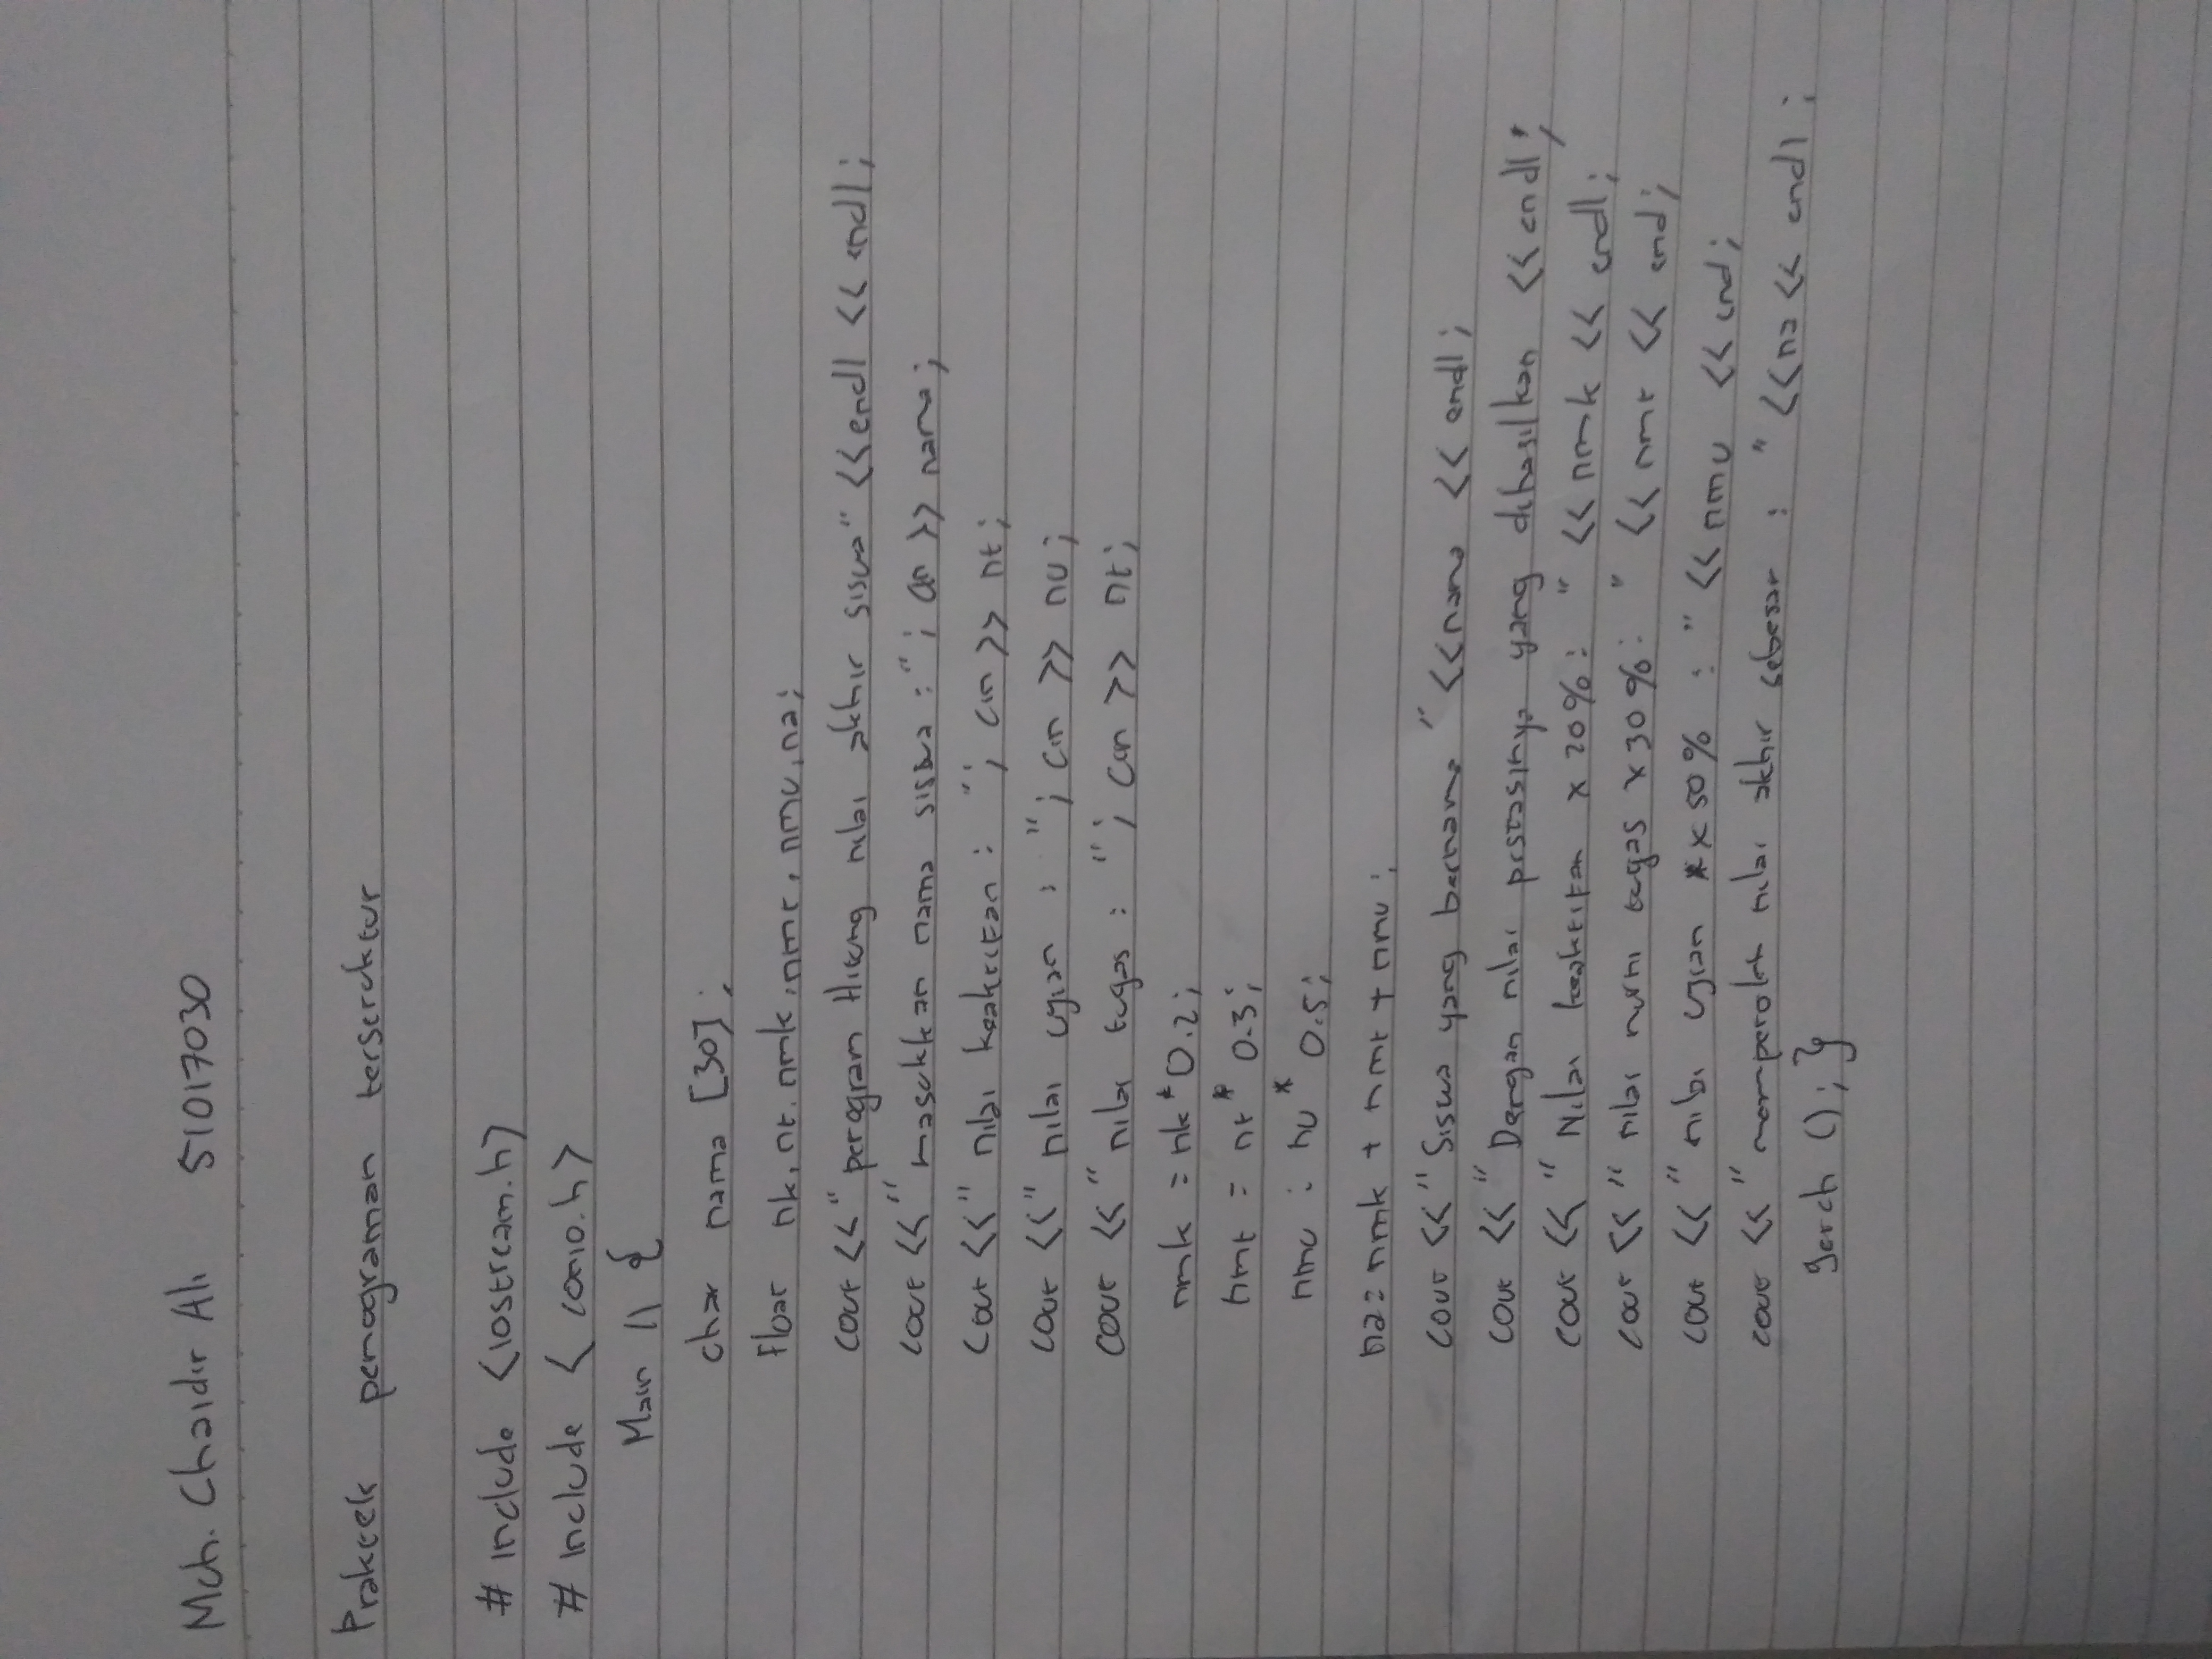 Mch. Chaidir Ali 51017030
Prakcek pemograman terserchktur
# Include <iostream.h>
# Include < conio.h>
Main () {
char nama [30];
Float nk, nt. nmk, nmt, nmu, na;
cout <<"perogram Hitung nilai akhir siswa" <<endl << endl;
cout <<"masukkan nama siswa :"; cin >> nama;
cout <<"nilai keaktifan : "; cin >> nt;
cout <<"nilai ujian : "; cin >> nu;
cout <<"nilai tugas : "; cin >> nt;
nmk = nk* 0.2;
nmt = nt* 0.3;
nmu : nu* 0.5;
na = nmk + nmt + nmu;
cout <<"Siswa yang bernama " <<nama << endl;
cout <<"Dengan nilai prstasinya yang dihasilkan << endl;
cout <<"Nilai keaktifan x 20% : " << nmk << endl;
cout <<"nilai murni tugas x 30% : " << nmt << end;
cout <<"nilai ujian x 50% : " << nmu << end;
cout <<"memperoleh nilai akhir sebesar : " <<na << endl;
getch (); }